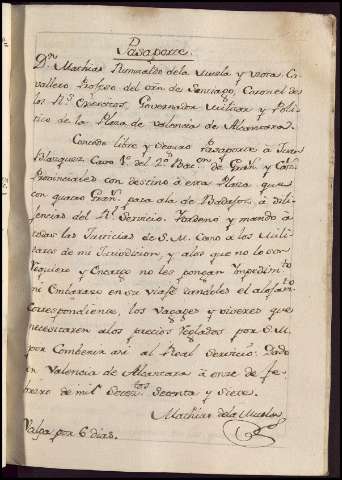 Pasaporte.
Dn. Mathias Rumualdo de la Muela y Ca-
vallero Profeso del orn. de Santiago, Coronel de
los Rs. Exercitos, Governador Militar y Poli-
tico de la Plaza de Valencia de Alcantara.
Concedo libre y seguro Pasaporte à Juan
Blazquez Cavo 1o. del 2o. Bacon. de Gran. y Cas.
Provinciales con destino à esta Plaza que
con quatro Gran. pasa à la de Badajoz, à dili-
gencias del Rl. Servicio. Hordeno y mando à
todas las Justicias de S.M. Como à los Mili-
tares de mi Jurisdicion, y alos que no lo son
Requiero y Encargo no les pongan Impedimto.
ni Embarazo en su viaje dandoles el alojamto.
Correspondiente, los vagages y viveres que
necesitaren alos precios Reglados por S.M.
por Combenir asi al Real Servicio. Dado
en Valencia de Alcantara à onze de fe-
brero de mil Setetos. Setenta y Siete.
Mathias de la Muela
Valga por 6 dias.